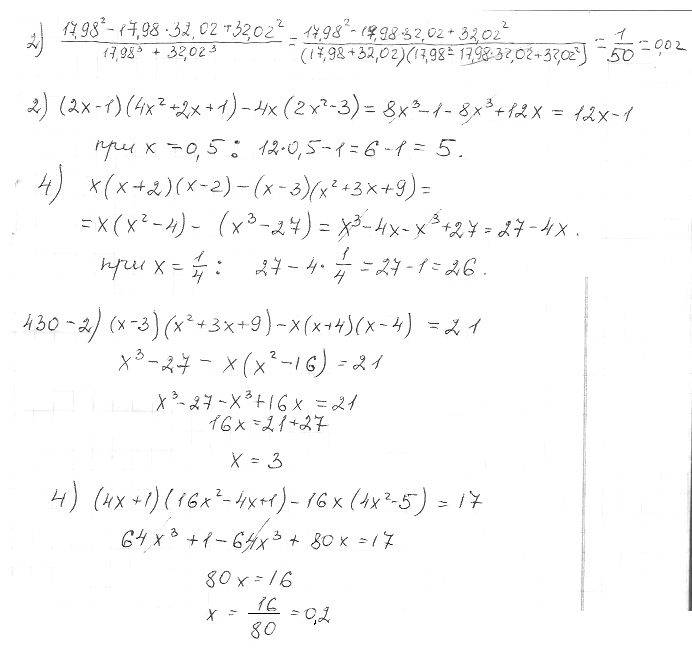 2) (17,98² - 17,98·32,02 + 32,02²)/(17,98³ + 32,02³) = (17,98² - 17,98·32,02 + 32,02²)/((17,98+32,02)(17,98² - 17,98·32,02 + 32,02²)) = 1/50 = 0,02
2) (2x-1)(4x²+2x+1) - 4x(2x²-3) = 8x³-1-8x³+12x = 12x-1
при x = 0,5 : 12·0,5-1 = 6-1 = 5.
4) x(x+2)(x-2) - (x-3)(x²+3x+9) =
= x(x²-4) - (x³-27) = x³-4x-x³+27 = 27-4x.
при x = 1/4 : 27-4·1/4 = 27-1 = 26.
430-2) (x-3)(x²+3x+9) - x(x+4)(x-4) = 21
x³-27 - x(x²-16) = 21
x³-27-x³+16x = 21
16x = 21+27
x = 3
4) (4x+1)(16x²-4x+1) - 16x(4x²-5) = 17
64x³+1-64x³+80x = 17
80x = 16
x = 16/80 = 0,2